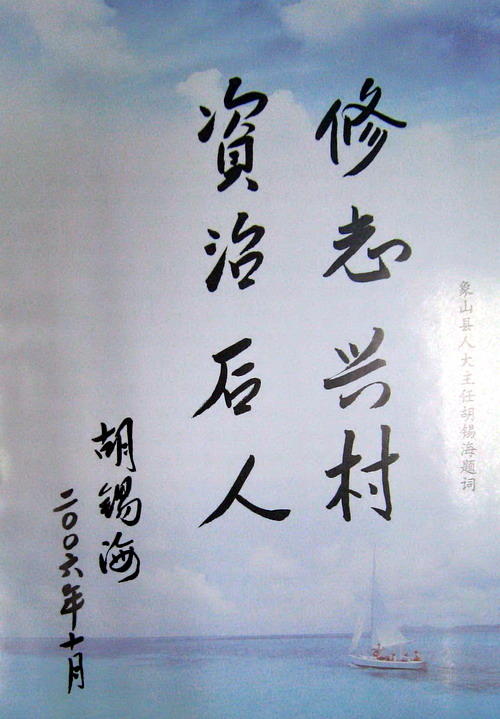 象山县人大主任胡锡海题词
修志兴村
資治后人
胡锡海
二〇〇六年十月